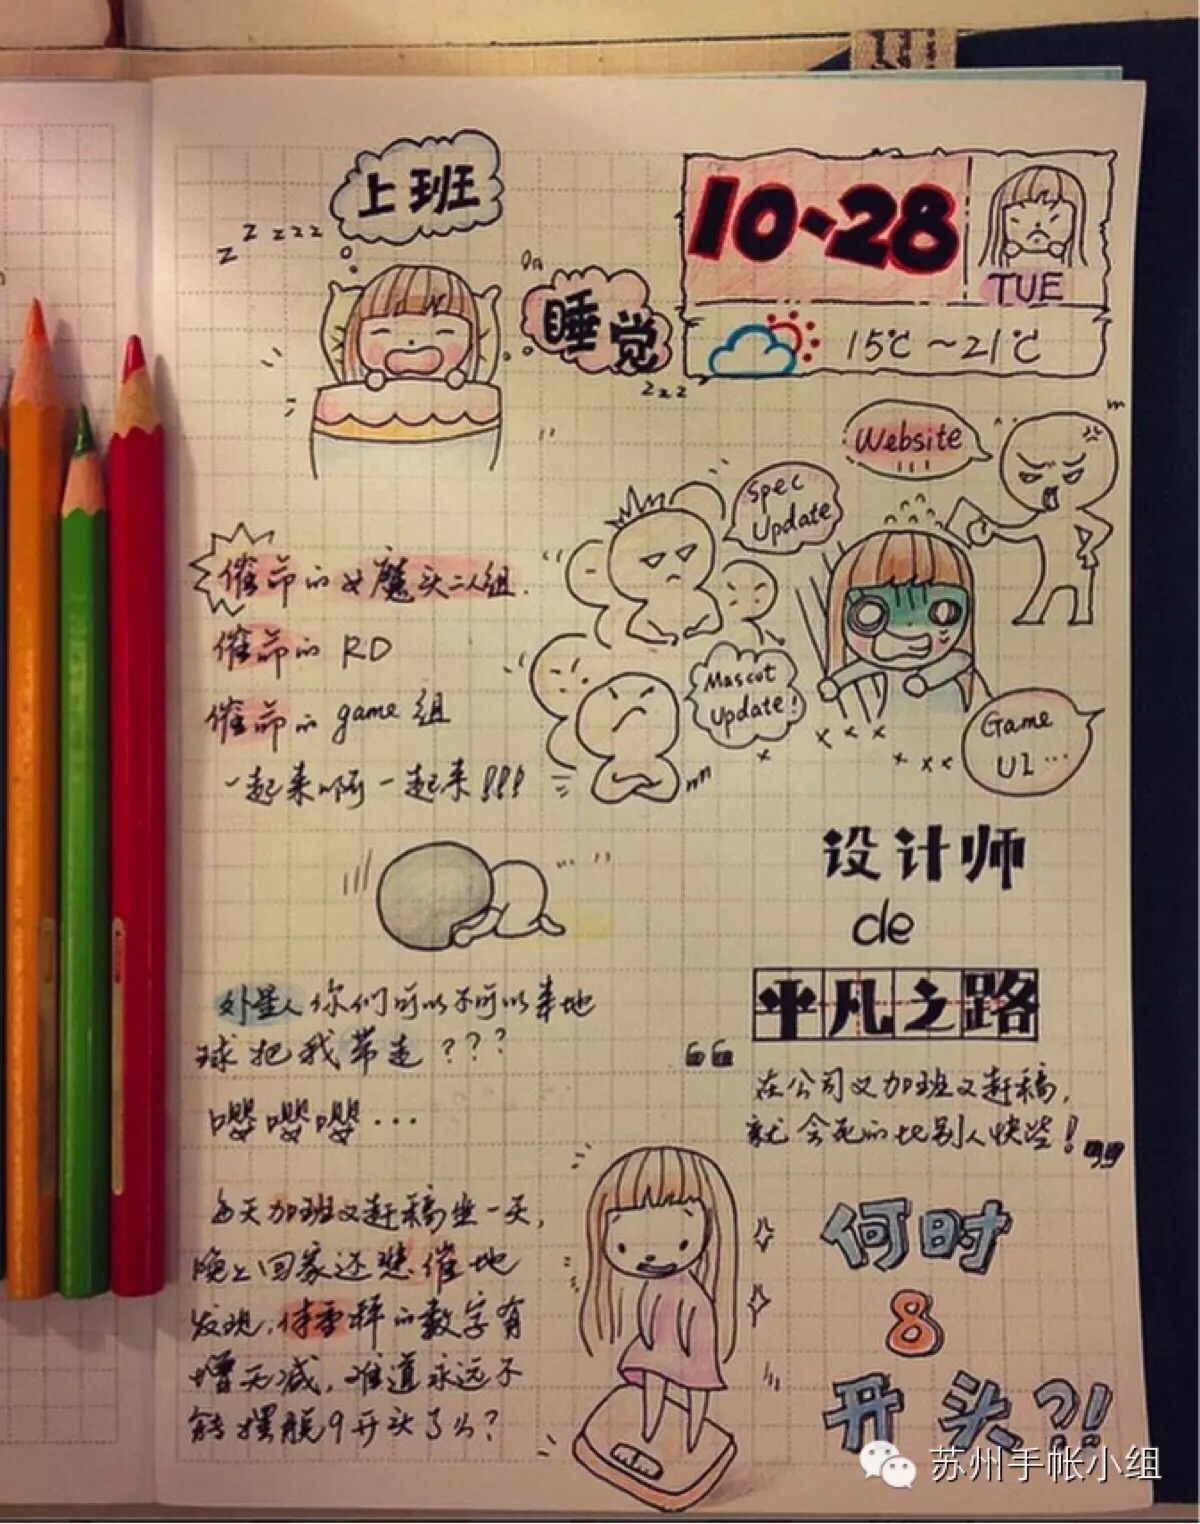 上班
z z z z z
睡觉
z z z
10-28
TUE
15℃~21℃
Website
Spec
Update
Mascot
Update!
Game
UI...
催命的女魔头二人组.
催命的 RD
催命的 game 组
一起来啊一起来!!!
设计师
de
平凡之路
外星人你们可以不可以来地
球把我带走???
嘤嘤嘤...
“在公司又加班又赶稿,
就会死的比别人快些!”
每天加班又赶稿坐一天,
晚上回家还悲催地
发现,体重秤的数字有
增无减,难道永远不
能摆脱9开头了么?
何时
8
开头?!
苏州手帐小组